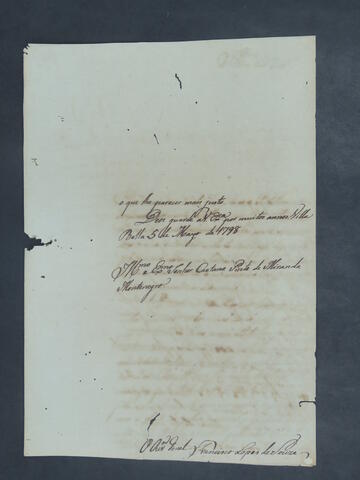 o que lhe parecer mais justo.
Deos guarde a V. Exa. por muitos annos. Villa
Bella 5 de Março de 1798
Illmo. e Exmo. Senhor Caetano Pinto de Miranda
Montenegro
Francisco Lopes de Souza